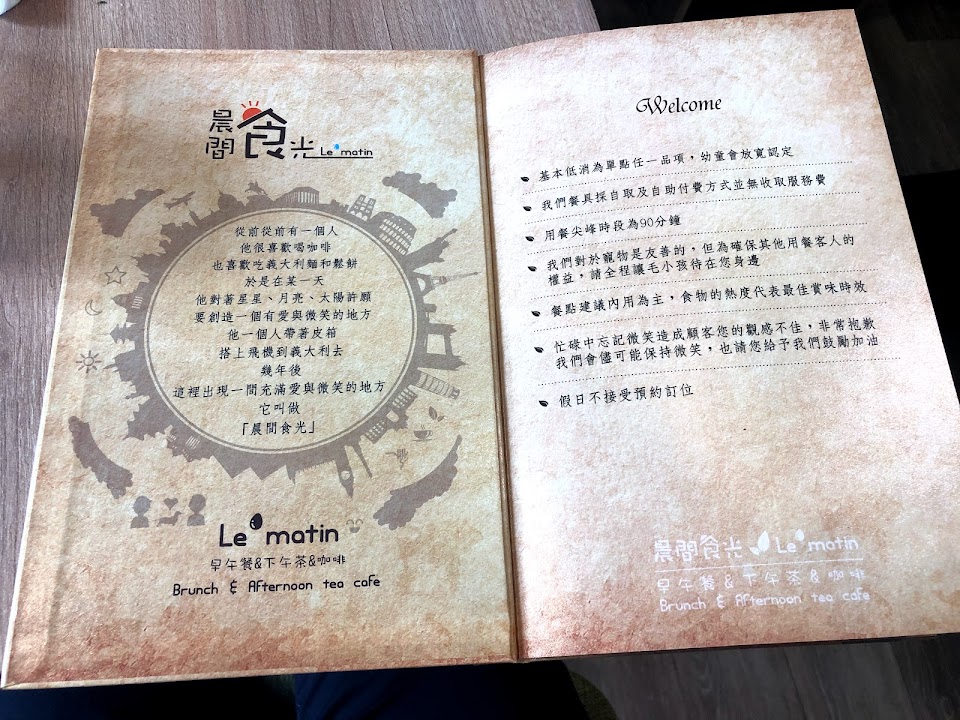 晨間食光 Le matin
從前從前有一個人
他很喜歡喝咖啡
也喜歡吃義大利麵和鬆餅
於是在某一天
他對著星星、月亮、太陽許願
要創造一個有愛與微笑的地方
他一個人帶著皮箱
搭上飛機到義大利去
幾年後
這裡出現一間充滿愛與微笑的地方
它叫做
「晨間食光」
Le matin
早午餐&下午茶&咖啡
Brunch & Afternoon tea cafe
Welcome
基本低消為單點任一品項，幼童會放寬認定
我們餐具採自取及自助付費方式並無收取服務費
用餐尖峰時段為90分鐘
我們對於寵物是友善的，但為確保其他用餐客人的
權益，請全程讓毛小孩待在您身邊
餐點建議內用為主，食物的熱度代表最佳賞味時效
忙碌中忘記微笑造成顧客您的觀感不佳，非常抱歉
我們會儘可能保持微笑，也請您給予我們鼓勵加油
假日不接受預約訂位
晨間食光 Le matin
早午餐&下午茶&咖啡
Brunch & Afternoon tea cafe